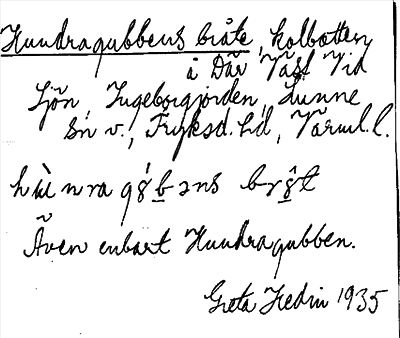 Hundragubbens bråte, kolbotten
å Där Väst Vid
Sjön, Ingeborgjorden, Sunne
sn v., Fryksd. hd, Värml. l.
hùnragǿbəns brǿ̂t
Även enbart Hundragubben.
Greta Hedin 1935